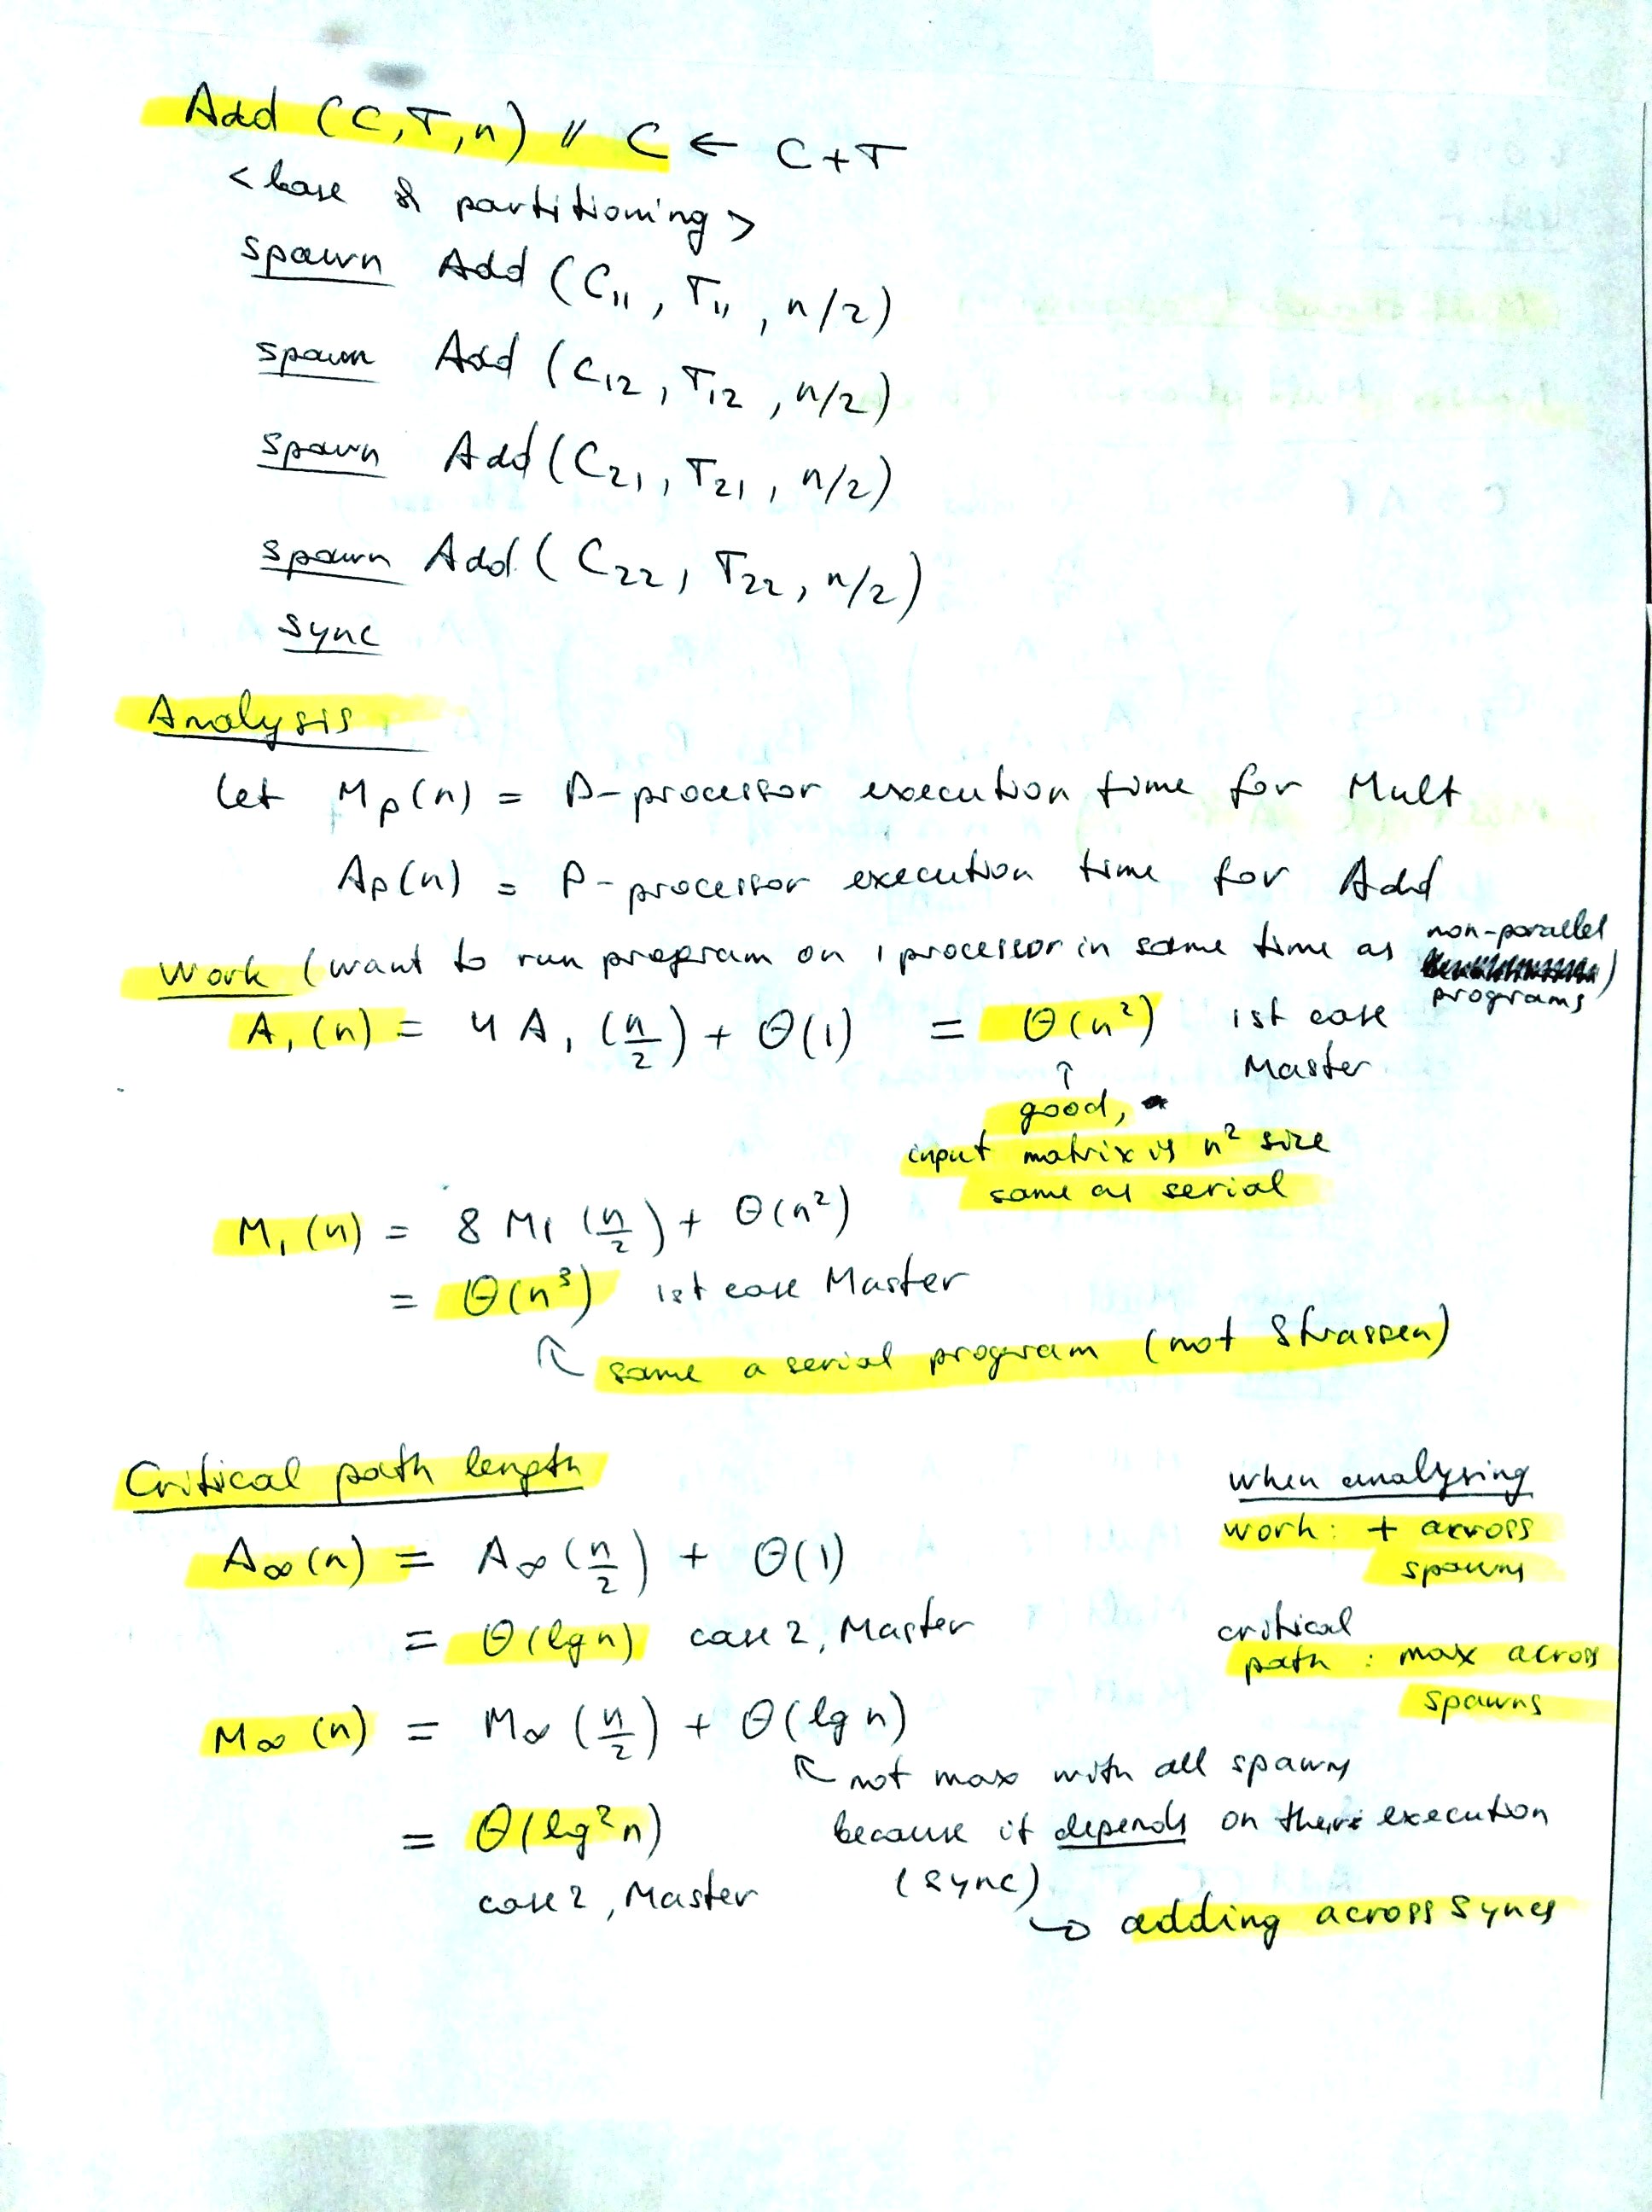 Add (C,T,n) // C ← C+T
<base & partitioning>
spawn Add (C₁₁, T₁₁, n/2)
spawn Add (C₁₂, T₁₂, n/2)
spawn Add (C₂₁, T₂₁, n/2)
spawn Add (C₂₂, T₂₂, n/2)
sync
Analysis
Let Mp(n) = P-processor execution time for Mult
Ap(n) = P-processor execution time for Add
Work (want to run program on 1 processor in same time as non-parallel programs)
A₁(n) = 4 A₁ (n/2) + Θ(1) = Θ(n²) 1st case
Master
↑
good,
input matrix is n² size
same as serial
M₁(n) = 8 M₁ (n/2) + Θ(n²)
= Θ(n³) 1st case Master
↖ same a serial program (not Strassen)
Critical path length
A∞(n) = A∞ (n/2) + Θ(1)
= Θ(lg n) case 2, Master
M∞(n) = M∞ (n/2) + Θ(lg n)
↖ not max with all spawns
because it depends on their execution
(sync)
↪ adding across syncs
= Θ(lg²n)
case 2, Master
when analysing
work: + across
spawns
critical
path : max across
spawns